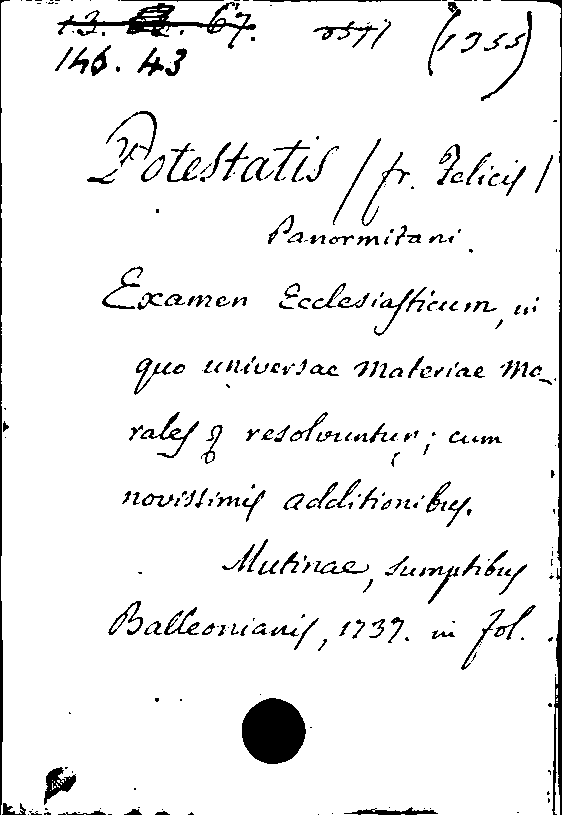 13. 67.
146. 43 (1355)
Potestatis / fr. Felicis /
Panormitani.
Examen Ecclesiasticum, in
quo universae Materiae Mo-
rales resolvuntur; cum
novissimis additionibus.
Mutinae, sumptibus
Balleonianis, 1737. in fol.